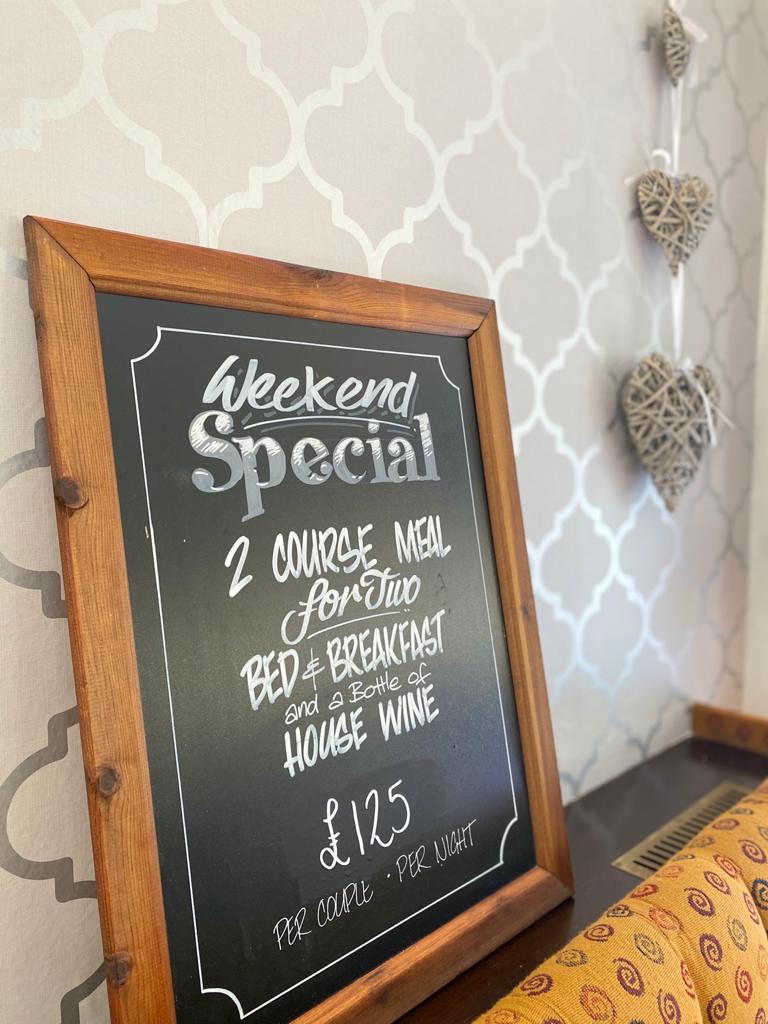 Weekend
Special
2 COURSE MEAL
for Two
BED & BREAKFAST
and a Bottle of
HOUSE WINE
£125
PER COUPLE · PER NIGHT